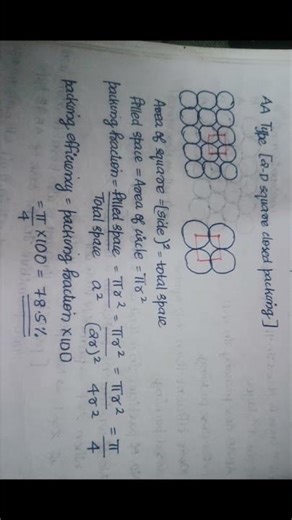 AA Type [2-D square closed packing]
Area of square = (side)² = total space
filled space = Area of circle = πr²
packing fraction = filled space / Total space = πr² / a² = πr² / (2r)² = πr² / 4r² = π / 4
packing efficiency = packing fraction × 100
= π / 4 × 100 = 78.5%